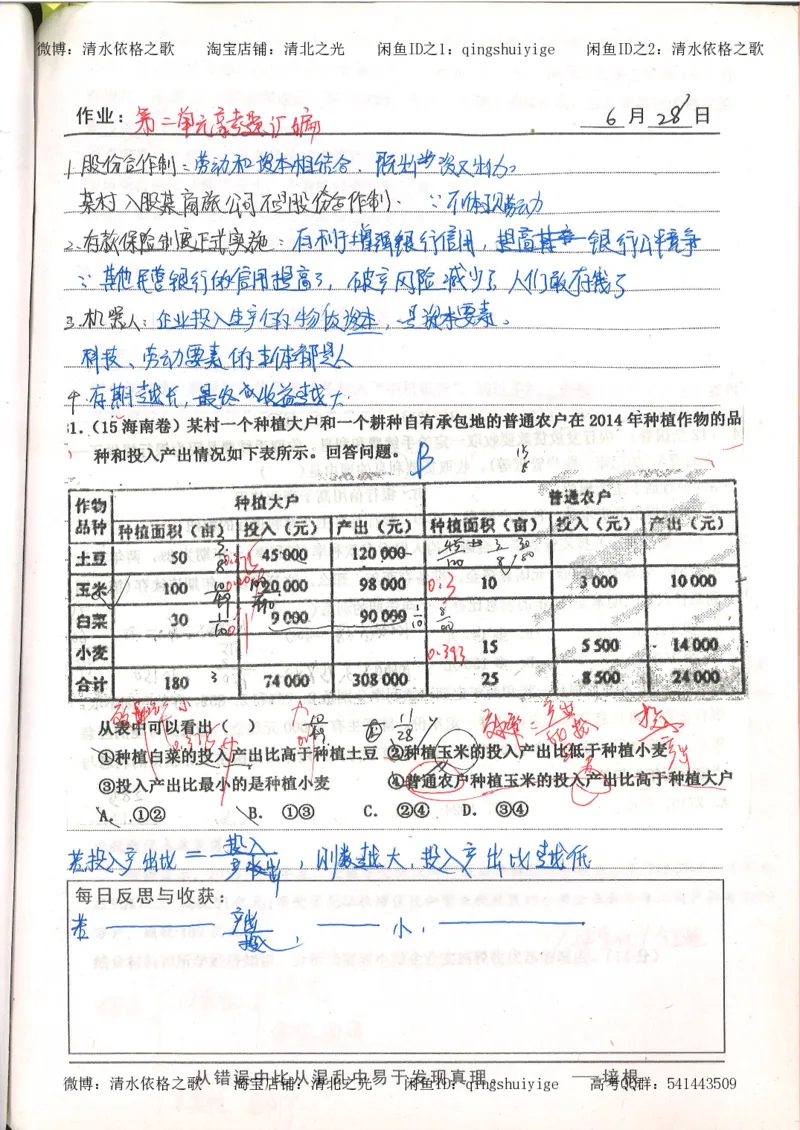 微博：清水依格之歌 淘宝店铺：清北之光 闲鱼ID之1：qingshuiyige 闲鱼ID之2：清水依格之歌
作业：第二单元高考题汇编 6月28日
1.股份合作制：劳动和资本相结合，既出资又出力。
某村入股某商旅公司不是股份合作制. ∵不体现劳动
2.存款保险制度正式实施：有利于增强银行信用，提高 银行公平竞争
∵其他民营银行的信用提高了，破产风险减少了 人们敢存钱了
3.机器人：企业投入生产的物质资本，是资本要素。
科技、劳动要素的主体都是人
4.存期越长，最终收益越大.
31.（15海南卷）某村一个种植大户和一个耕种自有承包地的普通农户在2014年种植作物的品
种和投入产出情况如下表所示。回答问题。 B
作物品种 种植大户 普通农户
种植面积（亩） 投入（元） 产出（元） 种植面积（亩） 投入（元） 产出（元）
土豆 50 45 000 120 000
玉米 100 20 000 98 000 10 3 000 10 000
白菜 30 9 000 90 000
小麦 15 5 500 14 000
合计 180 74 000 308 000 25 8 500 24 000
从表中可以看出（ ）
①种植白菜的投入产出比高于种植土豆 ②种植玉米的投入产出比低于种植小麦
③投入产出比最小的是种植小麦 ④普通农户种植玉米的投入产出比高于种植大户
A. ①② B. ①③ C. ②④ D. ③④
若投入产出比=投入/产出，则数越大，投入产出比越低
每日反思与收获：
若 产出/投入， 小，
从错误中比从混乱中易于发现真理 ——培根
微博：清水依格之歌 淘宝店铺：清北之光 闲鱼ID：qingshuiyige 高考QQ群：541443509